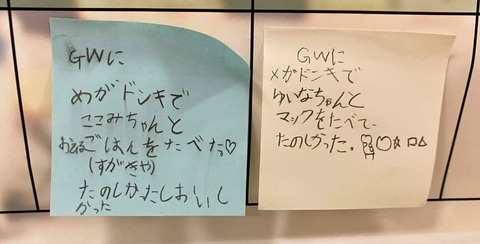 GWに
めがドンキで
ここみちゃんと
おひるごはんをたべた♡
(すがきや)
たのしかたしおいし
かった
GWに
メガドンキで
ゆいなちゃんと
マックをたべて、
たのしかった.